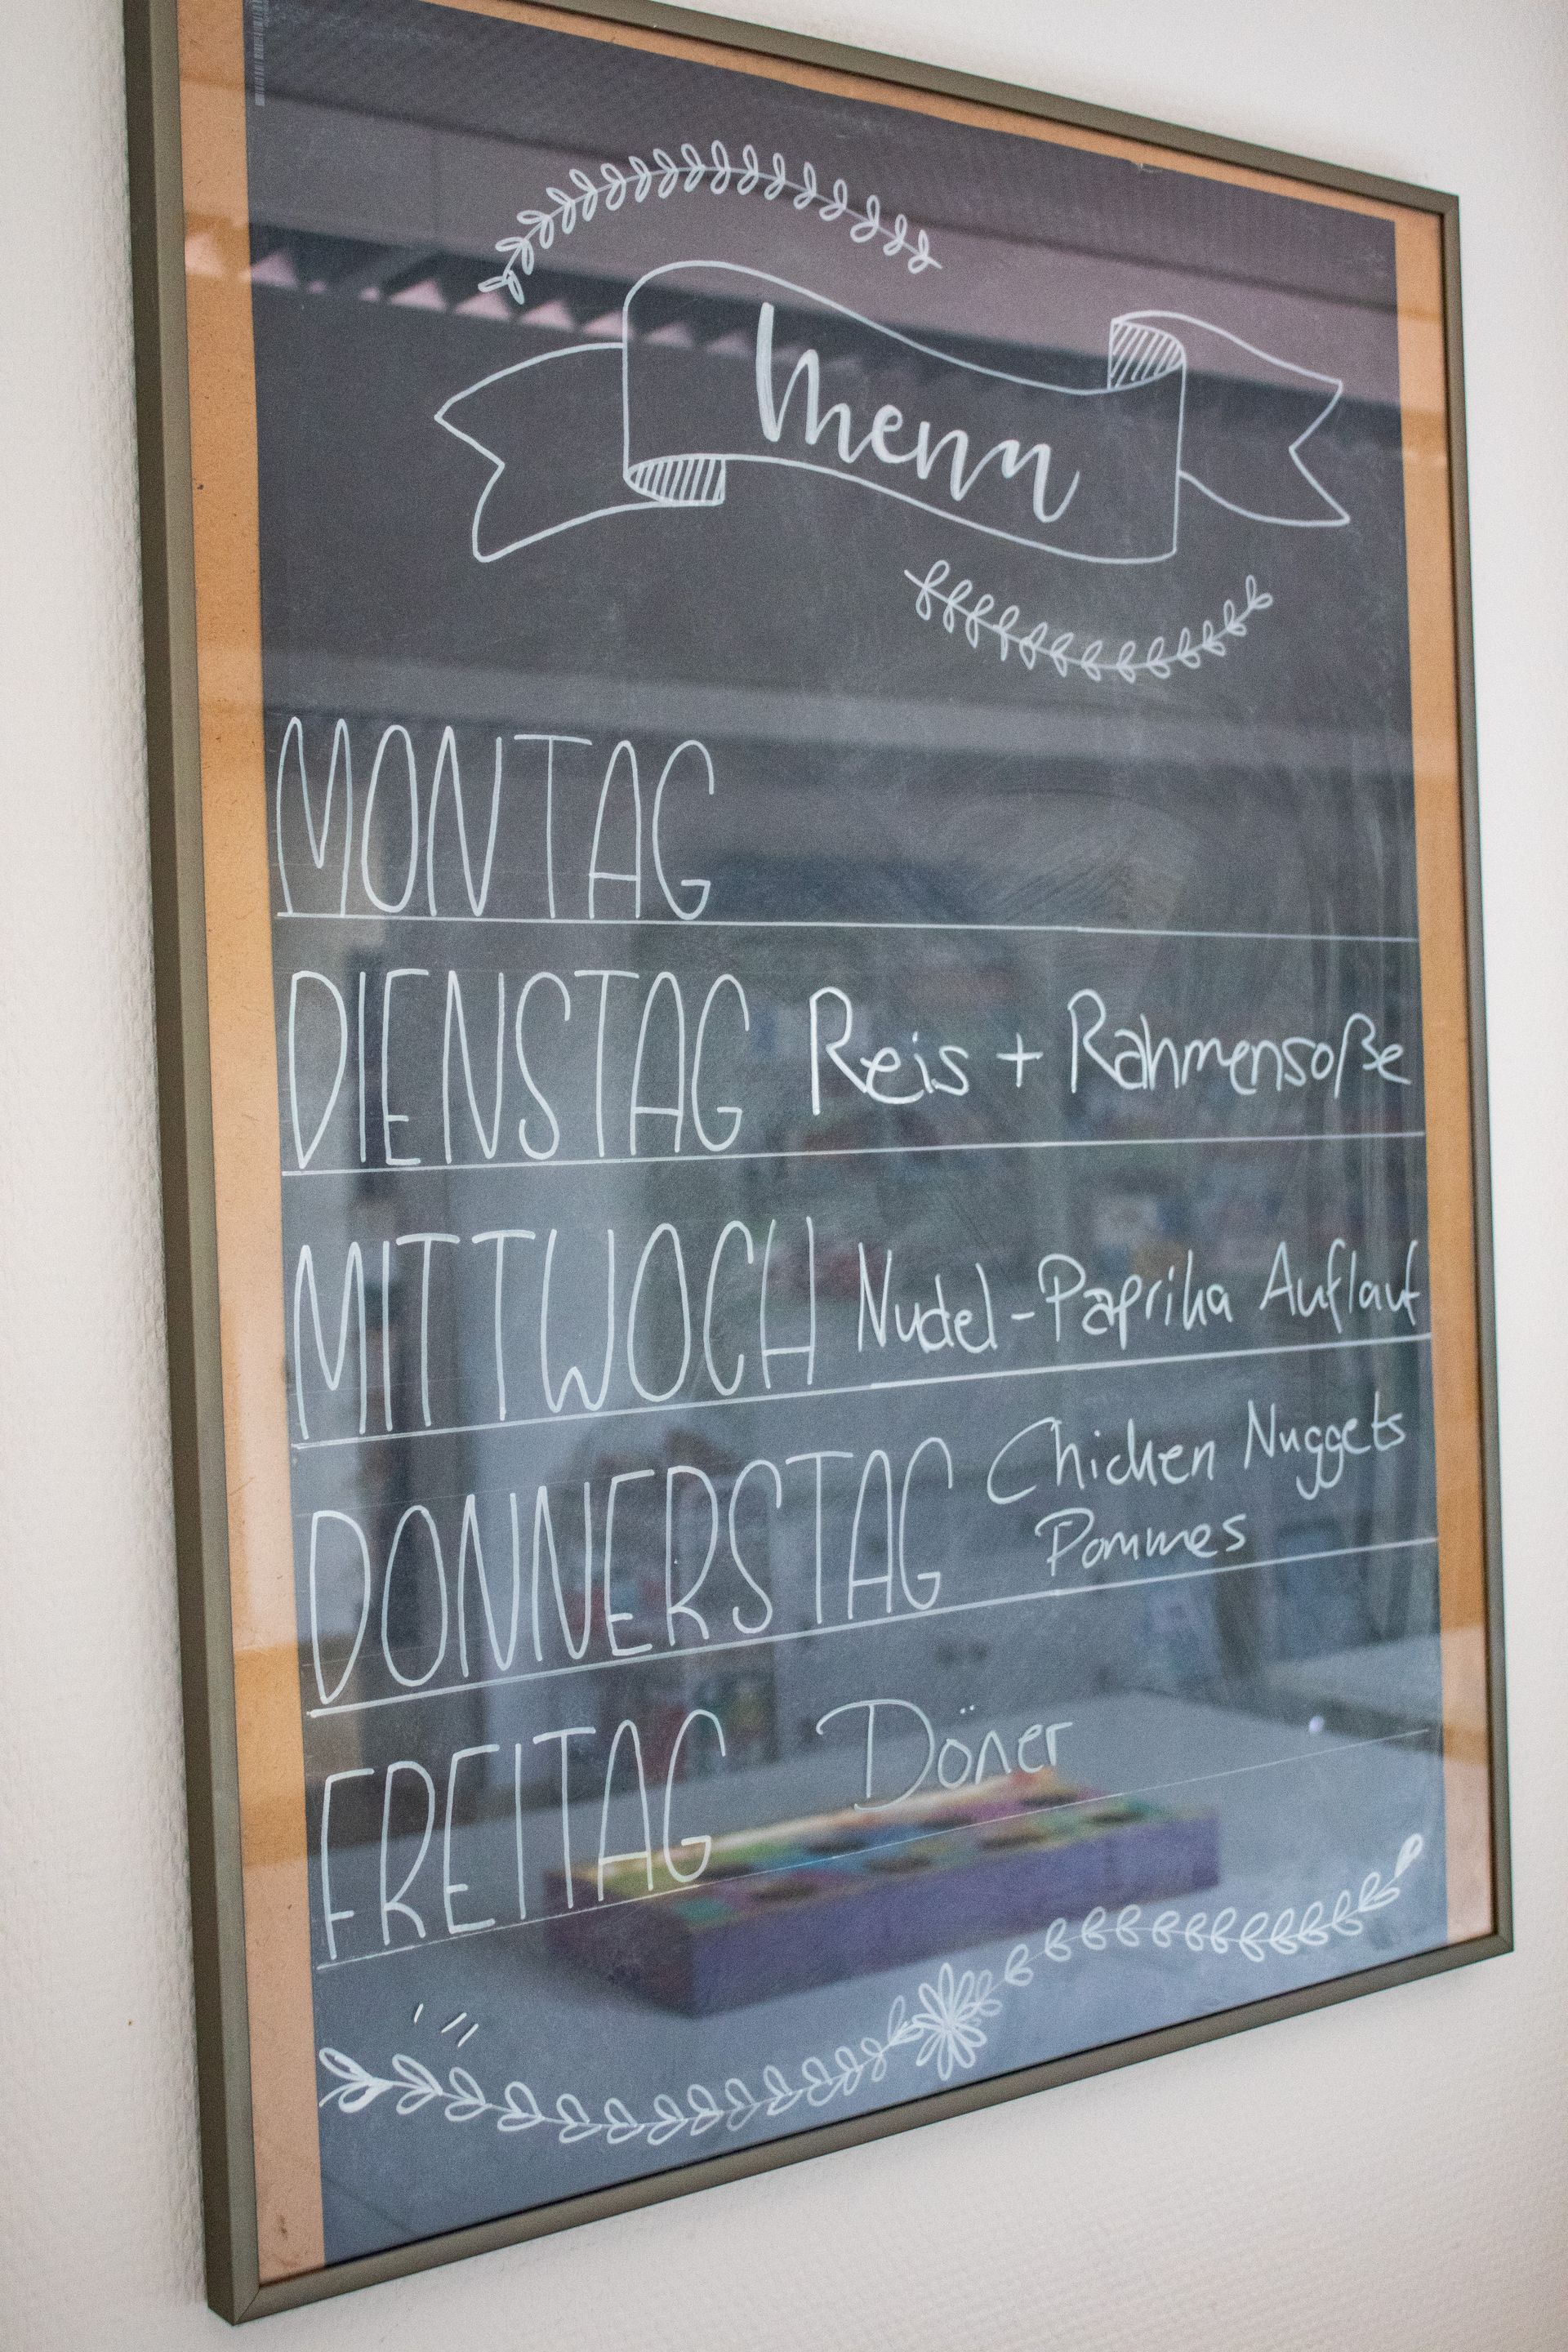 Menu
MONTAG
DIENSTAG Reis + Rahmensoße
MITTWOCH Nudel-Paprika Auflauf
DONNERSTAG Chicken Nuggets
Pommes
FREITAG Döner